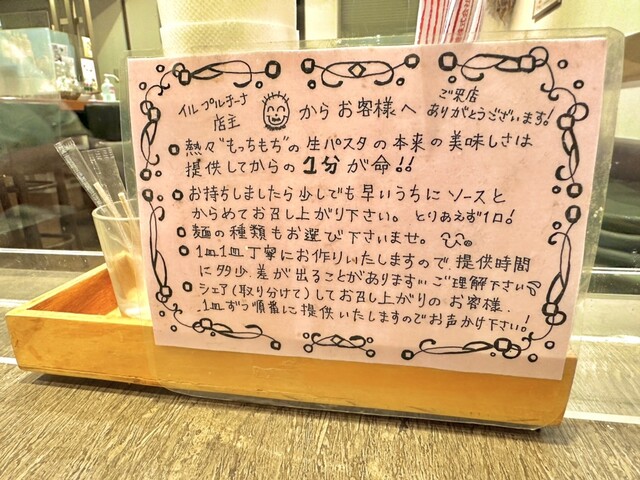 イル プルチーナ
店主
からお客様へ
ご来店
ありがとうございます!
熱々"もっちもち"の生パスタの本来の美味しさは
提供してからの1分が命!!
お持ちしましたら少しでも早いうちにソースと
からめてお召し上がり下さい。とりあえず1口!
麺の種類もお選び下さいませ。
1皿1皿丁寧にお作りいたしますので、提供時間
に多少、差が出ることがあります。ご理解下さい
シェア(取り分けて)してお召し上がりのお客様、
1皿ずつ順番に提供いたしますのでお声かけ下さい!